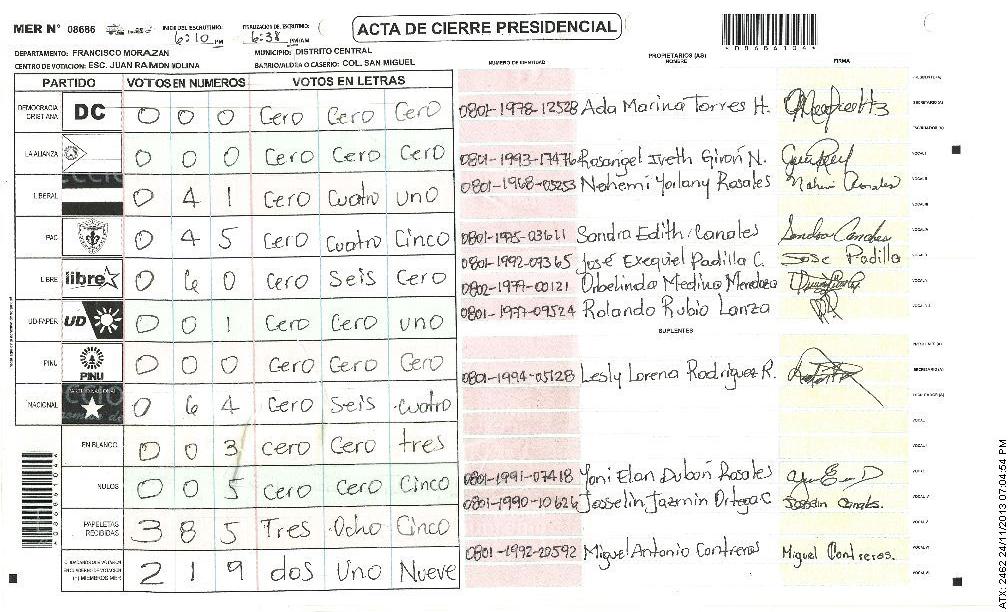 MER N° 08686 INICIO DEL ESCRUTINIO: 6:10 PM FINALIZACION DEL ESCRUTINIO: 6:38 PM/AM
ACTA DE CIERRE PRESIDENCIAL
DEPARTAMENTO: FRANCISCO MORAZAN MUNICIPIO: DISTRITO CENTRAL
CENTRO DE VOTACION: ESC. JUAN RAMON MOLINA BARRIO/ALDEA O CASERIO: COL. SAN MIGUEL
PARTIDO VOTOS EN NUMEROS VOTOS EN LETRAS
DEMOCRACIA CRISTIANA DC 0 0 0 Cero Cero Cero
LA ALIANZA 0 0 0 Cero Cero Cero
LIBERAL 0 4 1 Cero Cuatro uno
PAC 0 4 5 Cero Cuatro Cinco
LIBRE libre 0 6 0 Cero Seis Cero
UD-FAPER UD 0 0 1 Cero Cero uno
PINU PINU 0 0 0 Cero Cero Cero
NACIONAL 0 6 4 Cero Seis cuatro
EN BLANCO 0 0 3 cero Cero tres
NULOS 0 0 5 Cero Cero Cinco
PAPELETAS RECIBIDAS 3 8 5 Tres Ocho Cinco
2 1 9 dos Uno Nueve
NUMERO DE IDENTIDAD PROPIETARIOS (AS) NOMBRE FIRMA
0801-1978-12528 Ada Marina Torres H.
0801-1993-17476 Rosangel Iveth Girón N.
0801-1968-05253 Nohemi Yorlany Rosales
0801-1975-03611 Sandra Edith Canales Sandra Canales
0801-1992-07365 José Exequiel Padilla C. Jose Padilla
0802-1977-00121 Orbelinda Medina Mendoza
0801-1977-09524 Rolando Rubio Lanza
SUPLENTES
0801-1994-05128 Lesly Lorena Rodriguez R.
0801-1991-07418 Yoni Elan Dubón Rosales
0801-1990-10626 Josselin Jazmin Ortega C
0801-1992-20592 Miguel Antonio Contreras Miguel Contreras.
ATX: 2462 24/11/2013 07:04:54 PM